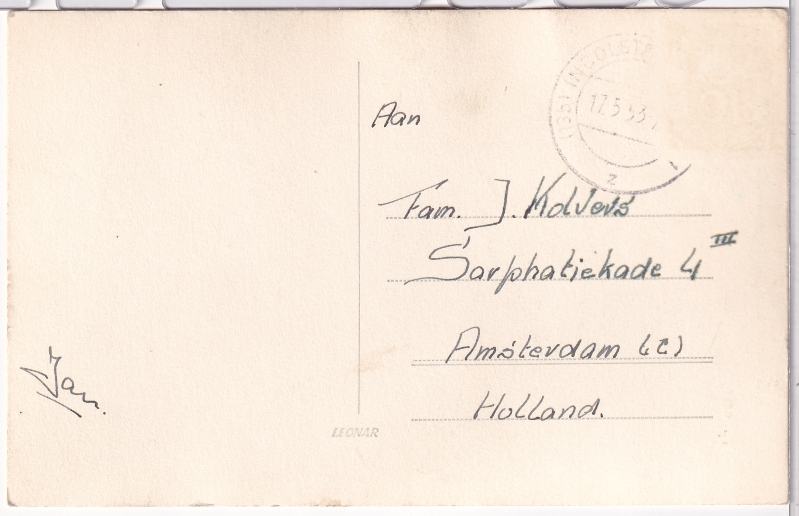 (13b) INGOLSTA
17.5.53.
z
Aan
Fam. J. Kolvers
Sarphatiekade 4 III
Amsterdam (C)
Holland.
Jan.
LEONAR